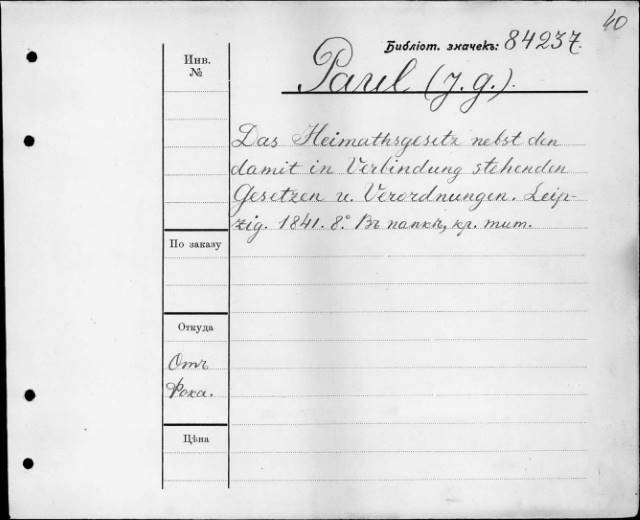 40
Библіот. значекъ: 84237.
Инв.
№
Paul (J. G.).
Das Heimathsgesetz nebst den
damit in Verbindung stehenden
Gesetzen u. Verordnungen. Leip-
zig. 1841. 8.° Въ папкѣ, кр. тит.
По заказу
Откуда
Отъ
Рока.
Цѣна